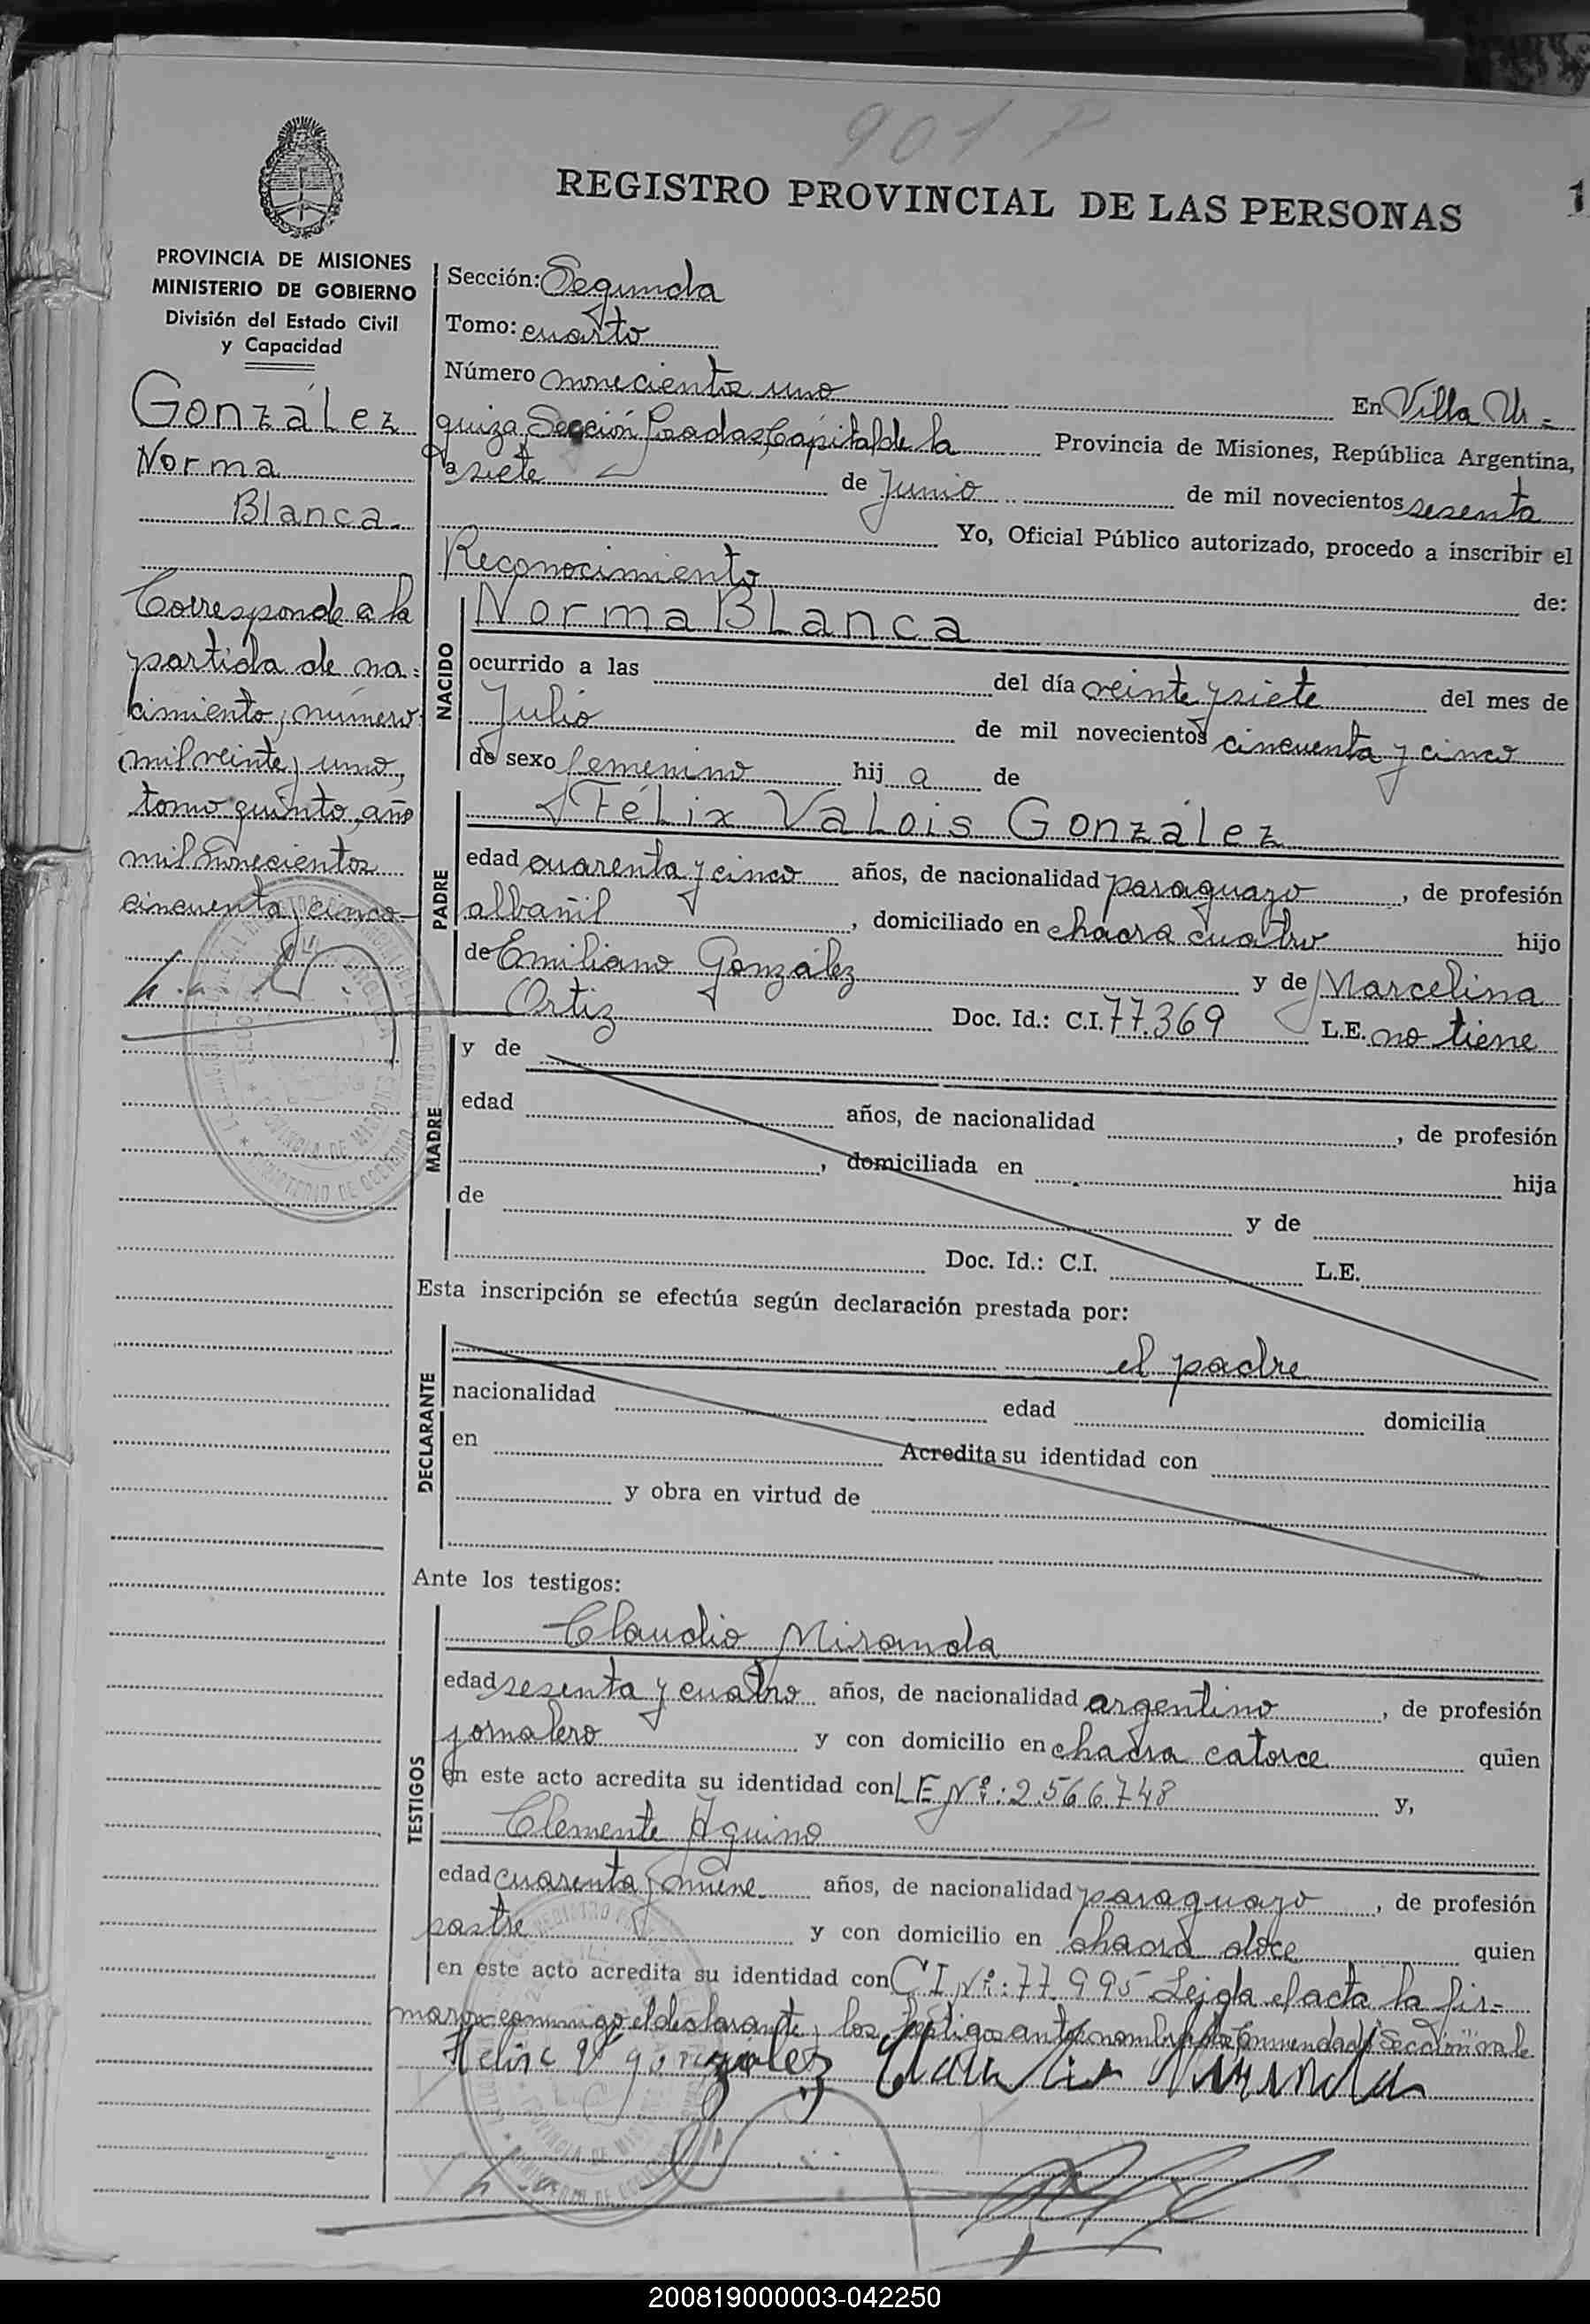 901 P
REGISTRO PROVINCIAL DE LAS PERSONAS
1
PROVINCIA DE MISIONES
MINISTERIO DE GOBIERNO
División del Estado Civil
y Capacidad
González
Norma
Blanca
Corresponde a la
partida de na-
cimiento, número
mil veinte y uno,
tomo quinto, año
mil novecientos
cincuenta y cinco
Sección: Segunda
Tomo: cuarto
Número novecientos uno En Villa Ur-
quiza, Sección Posadas, Capital de la Provincia de Misiones, República Argentina,
a siete de Junio de mil novecientos sesenta
Yo, Oficial Público autorizado, procedo a inscribir el
Reconocimiento de:
NACIDO
Norma Blanca
ocurrido a las del día veinte y siete del mes de
Julio de mil novecientos cincuenta y cinco
de sexo femenino hij a de
PADRE
Félix Valois González
edad cuarenta y cinco años, de nacionalidad paraguayo, de profesión
albañil, domiciliado en chacra cuatro hijo
de Emiliano González y de Marcelina
Ortiz Doc. Id.: C.I. 77.369 L.E. no tiene
MADRE
y de
edad años, de nacionalidad , de profesión
, domiciliada en hija
de y de
Doc. Id.: C.I. L.E.
Esta inscripción se efectúa según declaración prestada por:
DECLARANTE
el padre
nacionalidad edad domicilia
en Acredita su identidad con
y obra en virtud de
Ante los testigos:
TESTIGOS
Claudio Miranda
edad sesenta y cuatro años, de nacionalidad argentino, de profesión
jornalero y con domicilio en chacra catorce quien
en este acto acredita su identidad con L E Nº: 2.566.748 y,
Clemente Aquino
edad cuarenta y nueve años, de nacionalidad paraguayo, de profesión
sastre y con domicilio en chacra doce quien
en este acto acredita su identidad con C I Nº: 77.995 Leida el acta la fir-
maron conmigo el declarante y los testigos antes nombrados Enmendado: Sección: vale
Felix V gonzalez Claudio Miranda
200819000003-042250